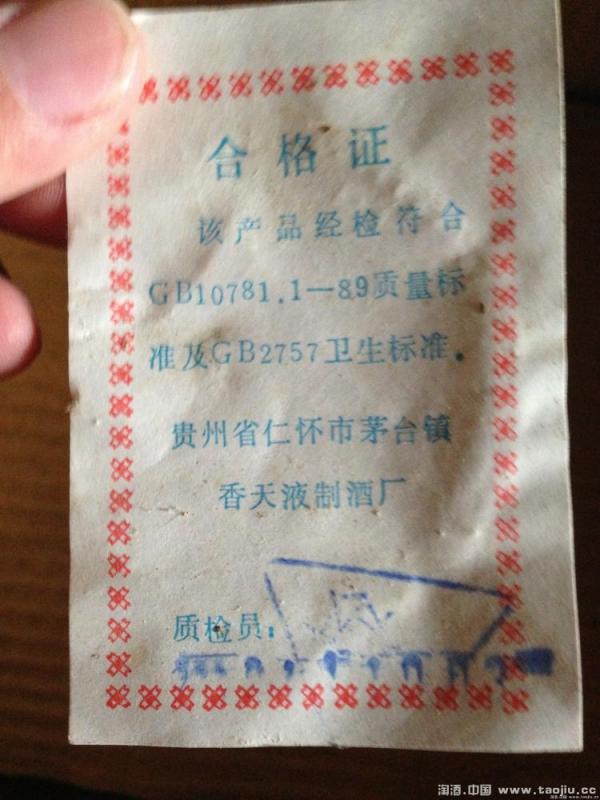 合格证
该产品经检符合
GB10781.1—89质量标
准及GB2757卫生标准.
贵州省仁怀市茅台镇
香天液制酒厂
质检员:
淘酒.中国 www.taojiu.cc